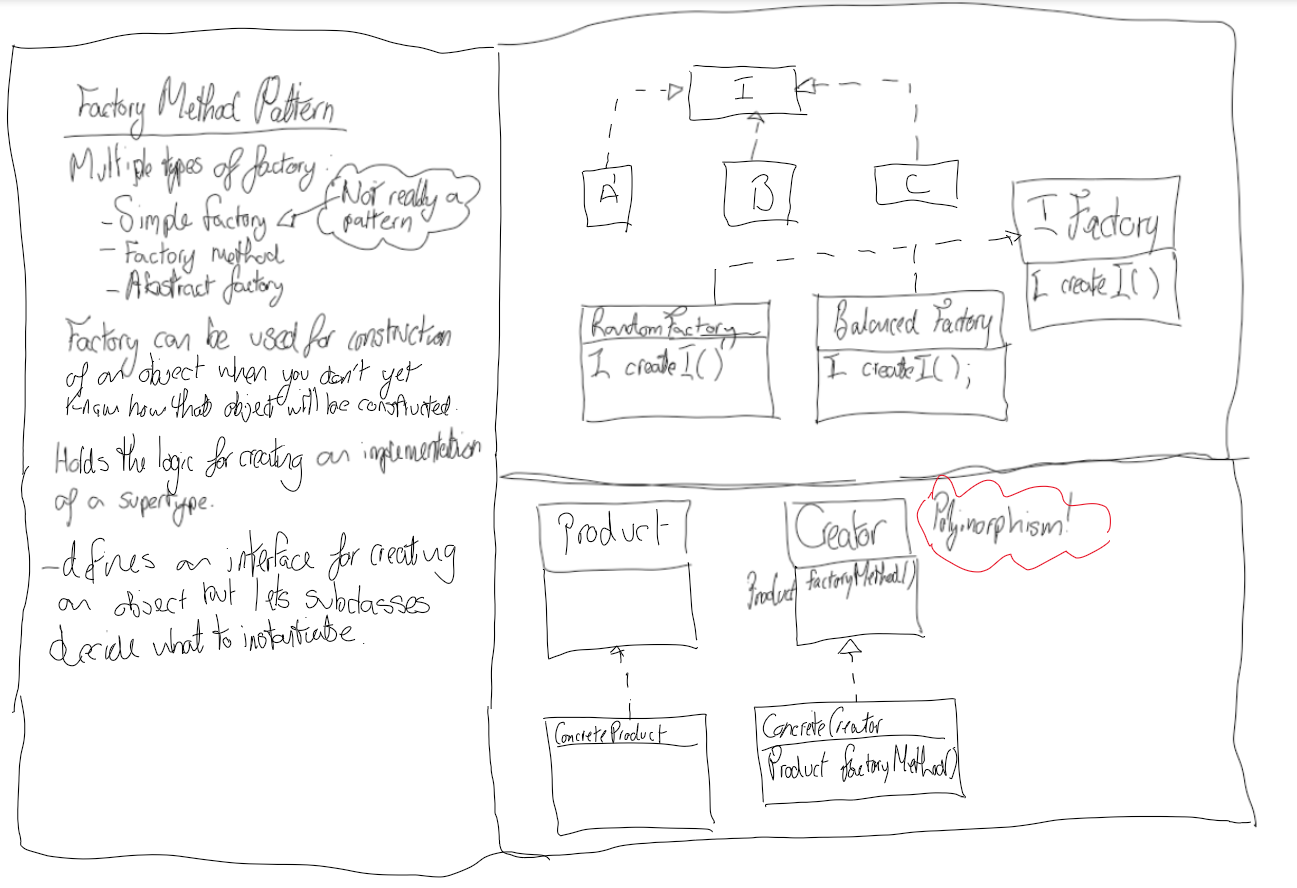 Factory Method Pattern
Multiple types of factory:
- Simple factory
Not really a
pattern
- Factory method
- Abstract factory
Factory can be used for construction
of an object when you don't yet
know how that object will be constructed.
Holds the logic for creating an implementation
of a supertype.
- defines an interface for creating
an object but lets subclasses
decide what to instantiate.
I
A
B
C
I Factory
I createI()
RandomFactory
I createI()
Balanced Factory
I createI();
Product
Creator
Product factoryMethod()
Polymorphism!
ConcreteProduct
ConcreteCreator
Product factoryMethod()